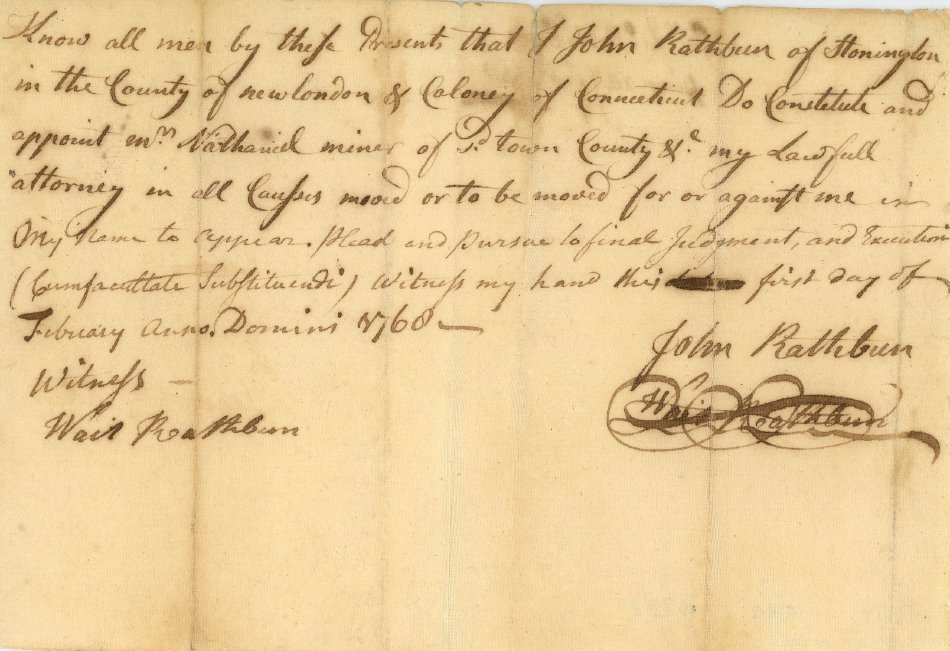 Know all men by these Presents that I John Rathbun of Stonington
in the County of newlondon & Coloney of Connecticut Do Constetute and
appoint mr. Nathaniel miner of sd. town County &c. my Lawfull
attorney in all Causses moved or to be moved for or against me in
My Name to Appear. plead and pursue to final Judgment, and Execution
(Cumfacultate Substituendi) Witness my hand this first day of
February Anno. Domini 1768
John Rathbun
Witness
Wait Rathbun
Wait Rathbun